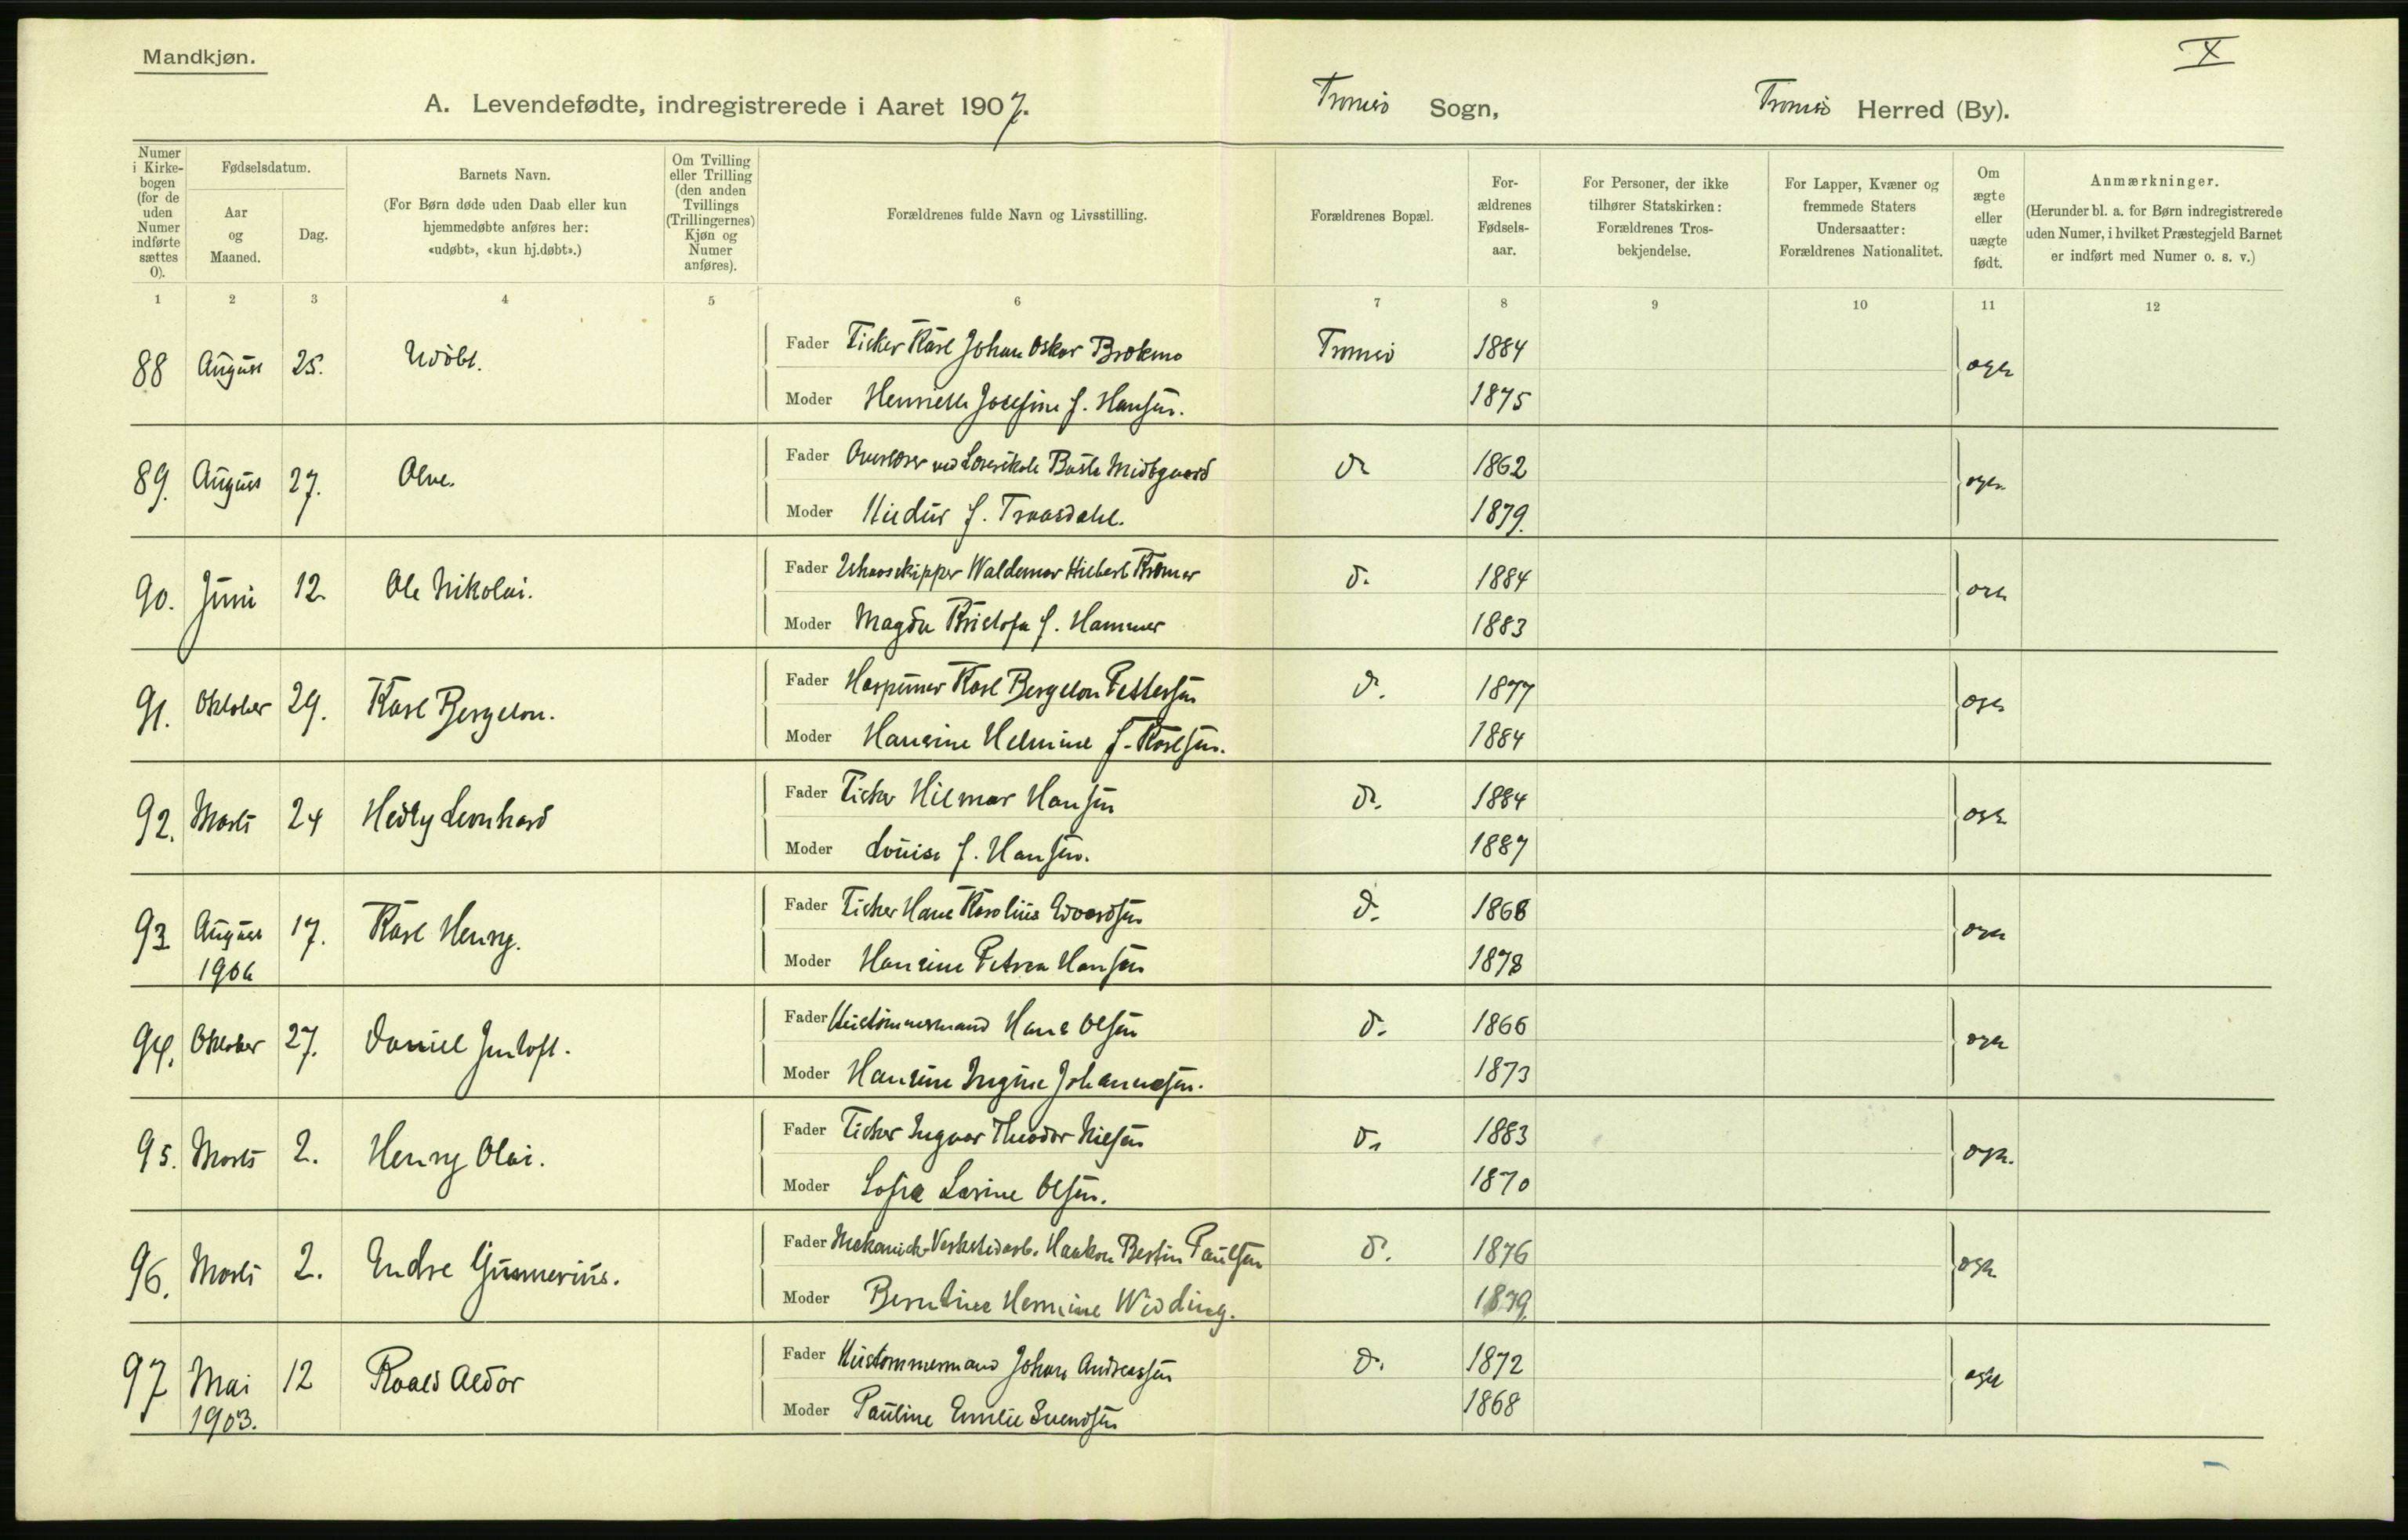 Mandkjøn.
X
A. Levendefødte, indregistrerede i Aaret 1907. Tromsø Sogn, Tromsø Herred (By).
Numer i Kirkebogen (for de uden Numer indførte sættes 0).
Fødselsdatum.
Aar og Maaned.
Dag.
Barnets Navn.
(For Børn døde uden Daab eller kun hjemmedøbte anføres her: «udøbt», «kun hj.døbt».)
Om Tvilling eller Trilling (den anden Tvillings (Trillingernes) Kjøn og Numer anføres).
Forældrenes fulde Navn og Livsstilling.
Forældrenes Bopæl.
Forældrenes Fødselsaar.
For Personer, der ikke tilhører Statskirken: Forældrenes Trosbekjendelse.
For Lapper, Kvæner og fremmede Staters Undersaatter: Forældrenes Nationalitet.
Om ægte eller uægte født.
Anmærkninger.
(Herunder bl. a. for Børn indregistrerede uden Numer, i hvilket Præstegjeld Barnet er indført med Numer o. s. v.)
1 2 3 4 5 6 7 8 9 10 11 12
88 August 25. Udøbt. Fader Fisker Karl Johan Oskar Brokmo Tromsø 1884 ægte
Moder Henriette Josefine f. Hansen. 1875
89. August 27. Alve. Fader Overlærer ved Midtgaard do 1862 ægte
Moder Hildur f. Traasdahl. 1879.
90. Juni 12. Ole Nikolai. Fader Ishavsskipper Waldemar Hilbert Kræmer d. 1884 ægte
Moder Magda Kristofa f. Hammer 1883
91. Oktober 29. Karl Bergeton. Fader Harpuner Karl Bergeton Pettersen d. 1877 ægte
Moder Hansine Helmine f. Karlsen. 1884
92. Marts 24 Hedly Leonhard Fader Fisker Hilmar Hansen d. 1884 ægte
Moder Louise f. Hansen. 1887
93 August 17. Karl Henry. Fader Fisker Hans Karolius Edvardsen d. 1868 ægte
1906 Moder Hansine Petrea Hansen 1878
94. Oktober 27. Daniel Jentoft. Fader Hustømmermand Hans Olsen d. 1866 ægte
Moder Hansine Ingine Johannesen. 1873
95. Marts 2. Henry Olai. Fader Fisker Ingvar Theodor Nilsen d. 1883 ægte.
Moder Sofie Larine Olsen. 1870
96. Marts 2. Endre Gunnerius. Fader Mekanisk Verkstedarb. Haakon Bertin Paulsen d. 1876 ægte
Moder Berntine Hermine Widding. 1879.
97 Mai 12 Roald Aldor Fader Hustømmermand Johan Andreassen d. 1872 ægte
1903. Moder Pauline Emelie Svendsen 1868